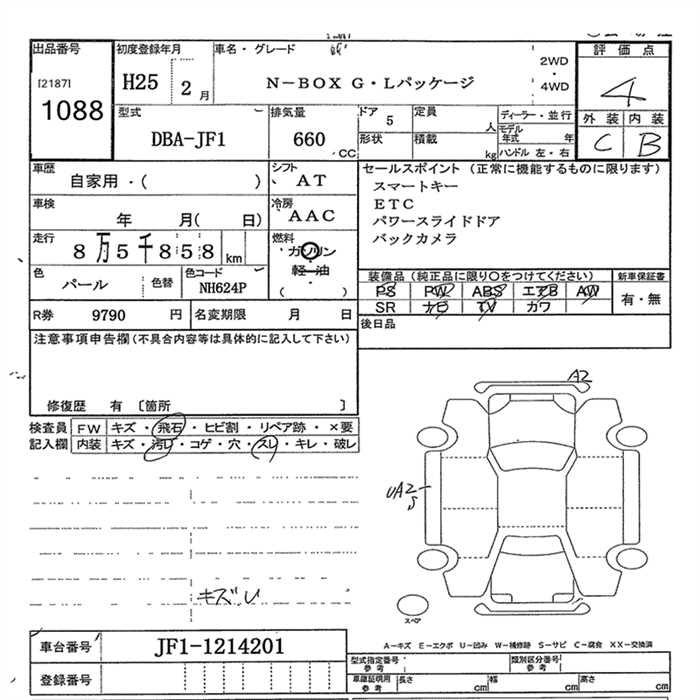 出品番号
[2187]
1088
初度登録年月
H25 2月
車名・グレード
N-BOX G・Lパッケージ
2WD
・
4WD
評価点
4
外装 内装
C B
型式
DBA-JF1
排気量
660 CC
ドア 5
定員 人
ディーラー・並行
モデル年式 年
形状
積載 kg
ハンドル 左・右
車歴
自家用・( )
シフト
AT
セールスポイント (正常に機能するものに限ります)
スマートキー
ETC
パワースライドドア
バックカメラ
車検
年 月( 日)
冷房
AAC
走行
8万5千858 km
燃料
ガソリン
軽・油
( )
色
パール
色替
色コード
NH624P
装備品 (純正品に限り○をつけてください)
新車保証書
PS PW ABS エアB AW
有・無
SR ナビ TV カワ
R券 9790 円
名変期限 月 日
後日品
注意事項申告欄 (不具合内容等は具体的に記入して下さい)
修復歴 有 [箇所 ]
検査員
記入欄
FW キズ・飛石・ヒビ割・リペア跡・×要
内装 キズ・汚れ・コゲ・穴・スレ・キレ・破レ
A2
UA2
S
スペア
A-キズ E-エクボ U-凹み W-補修跡 S-サビ C-腐食 XX-交換済
車台番号 JF1-1214201
登録番号
型式指定番号 参考
類別区分番号 参考
車庫証明用 参考
長さ cm
幅 cm
高さ cm